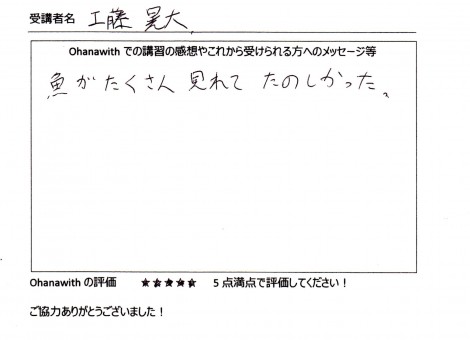 受講者名 工藤 晃大
Ohanawith での講習の感想やこれから受けられる方へのメッセージ等
魚がたくさん 見れて たのしかった。
Ohanawith の評価 ★★★★★ 5 点満点で評価してください！
ご協力ありがとうございました！